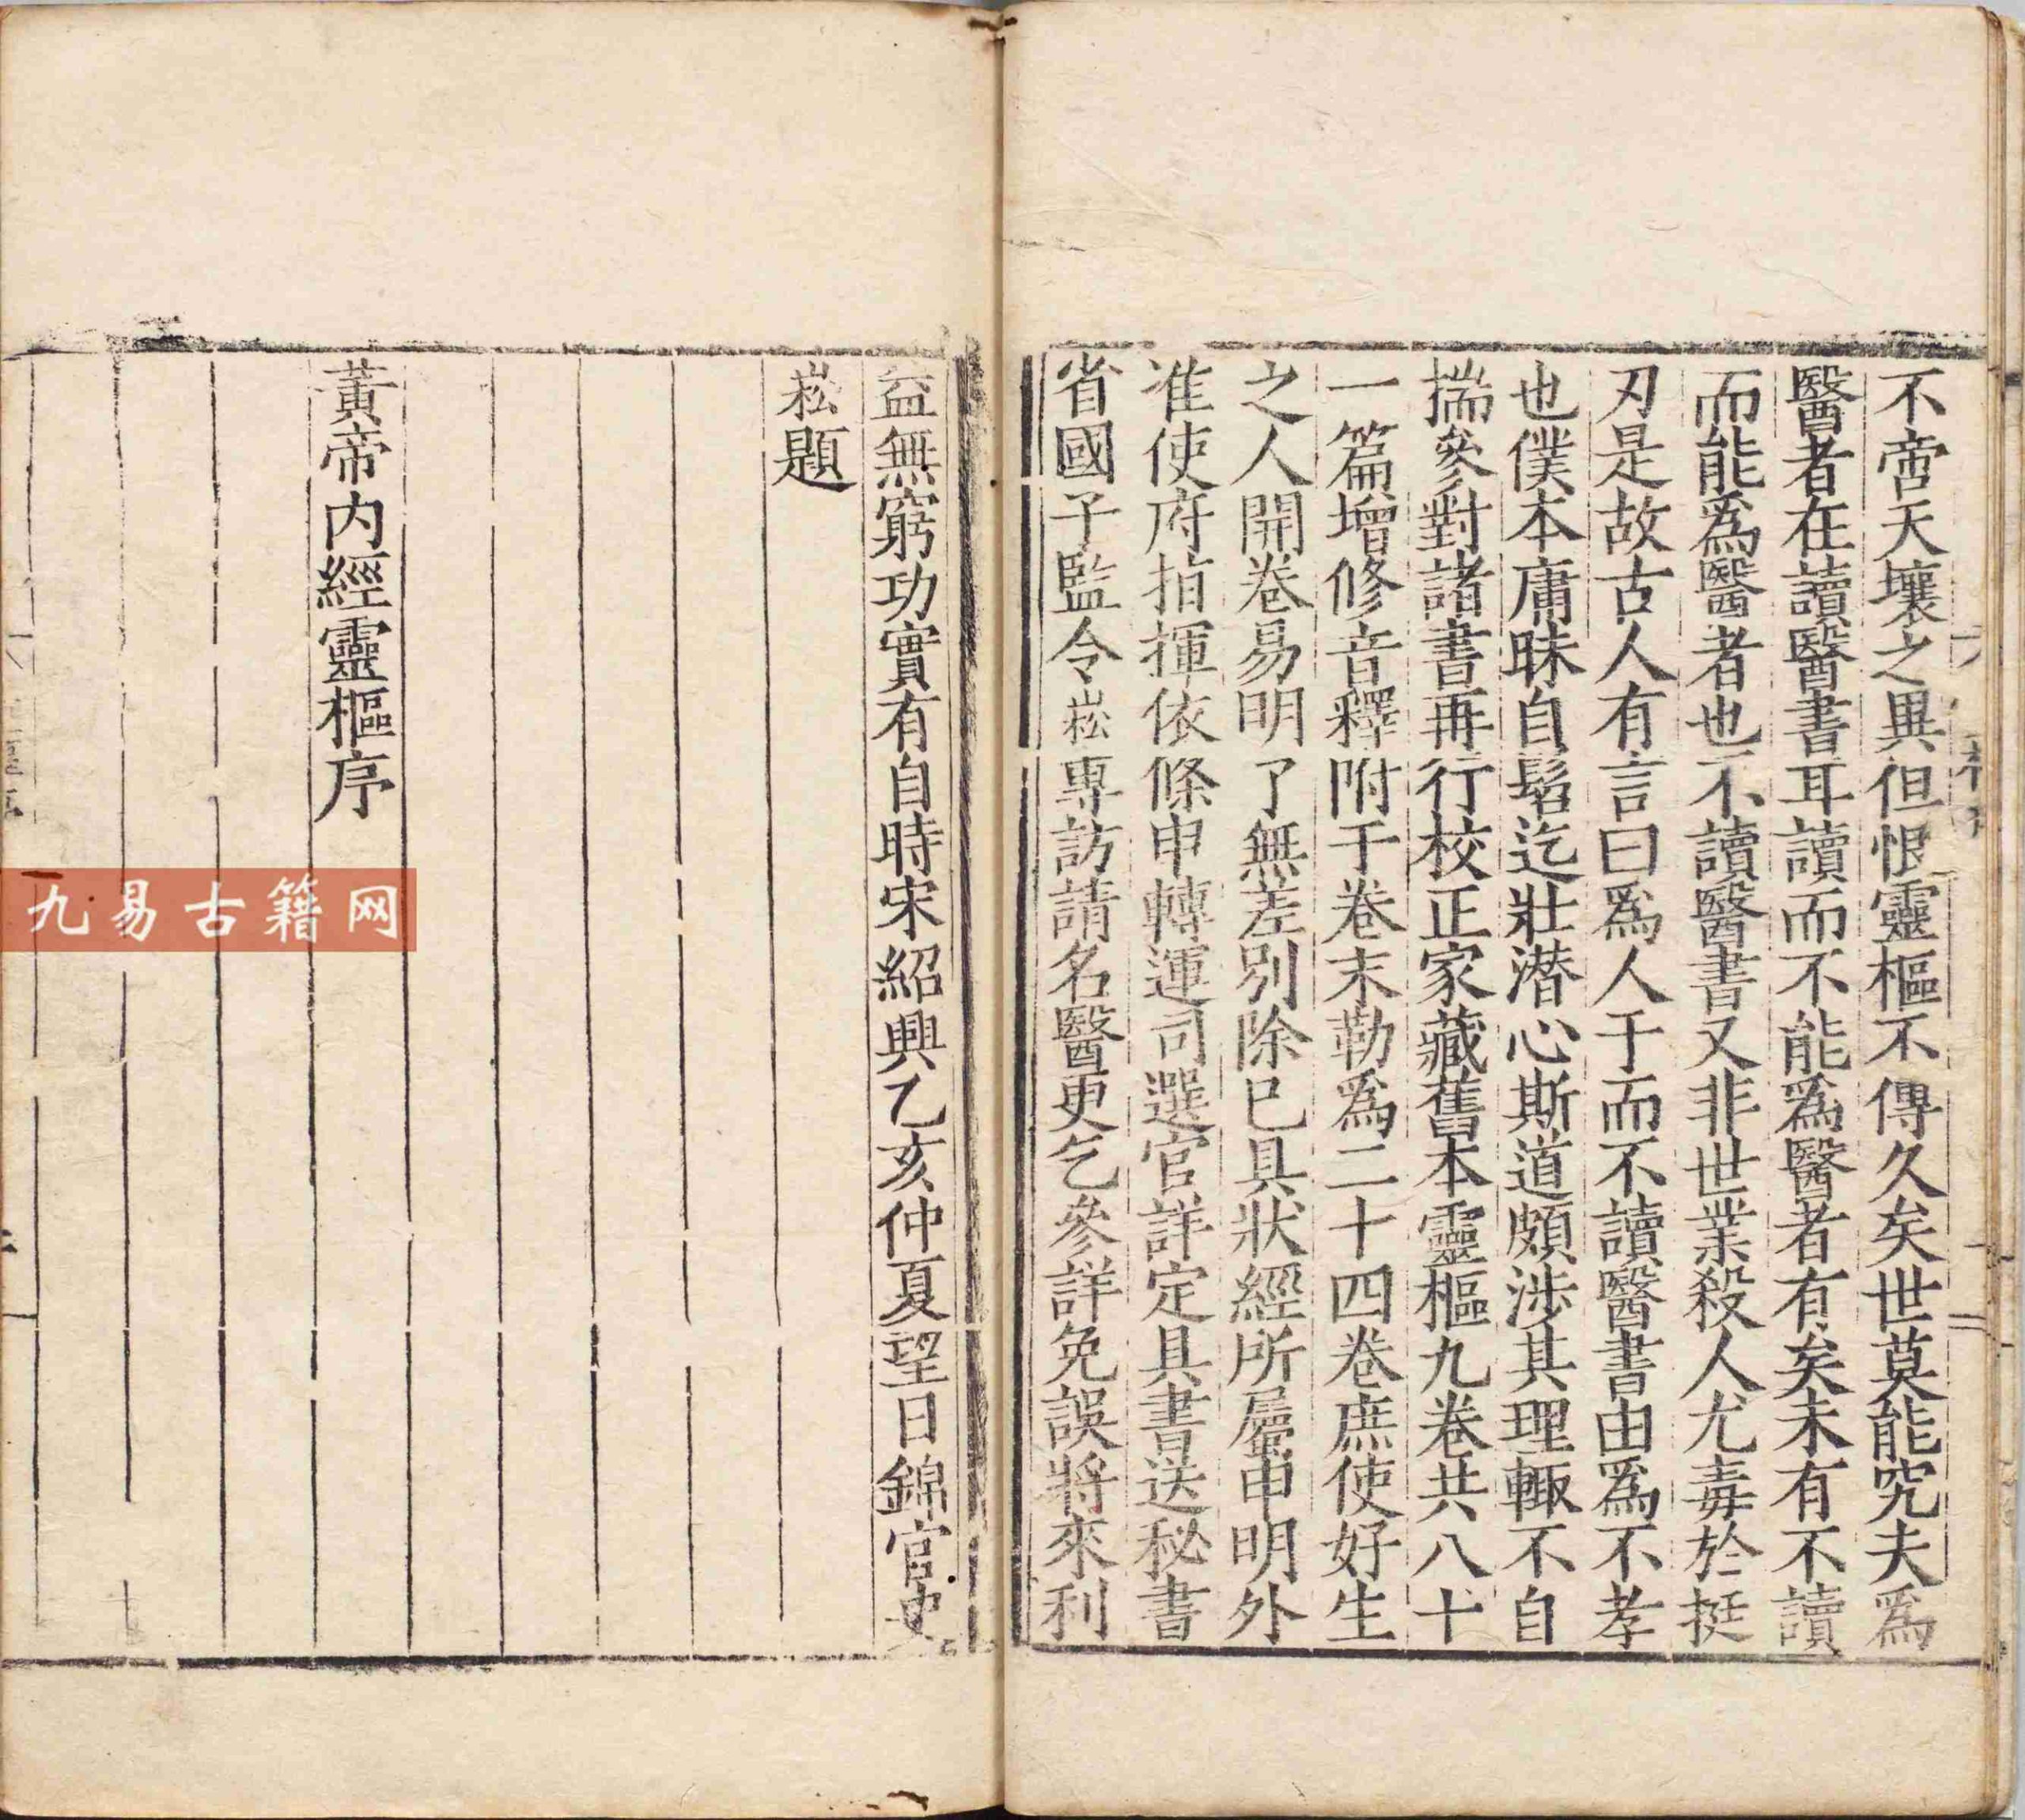 不啻天壤之異但恨靈樞不傳久矣世莫能究夫爲
醫者在讀醫書耳讀而不能爲醫者有矣未有不讀
而能爲醫者也不讀醫書又非世業殺人尤毒於挺
刃是故古人有言曰爲人子而不讀醫書由爲不孝
也僕本庸昧自髫迄壯潛心斯道頗涉其理輒不自
揣參對諸書再行校正家藏舊本靈樞九卷共八十
一篇增修音釋附于卷末勒爲二十四卷庶使好生
之人開卷易明了無差別除已具狀經所屬申明外
准使府指揮依條申轉運司選官詳定具書送秘書
省國子監令崧專訪請名醫更乞參詳免誤將來利
益無窮功實有自時宋紹興乙亥仲夏望日錦官史
崧題
黃帝内經靈樞序
九易古籍网